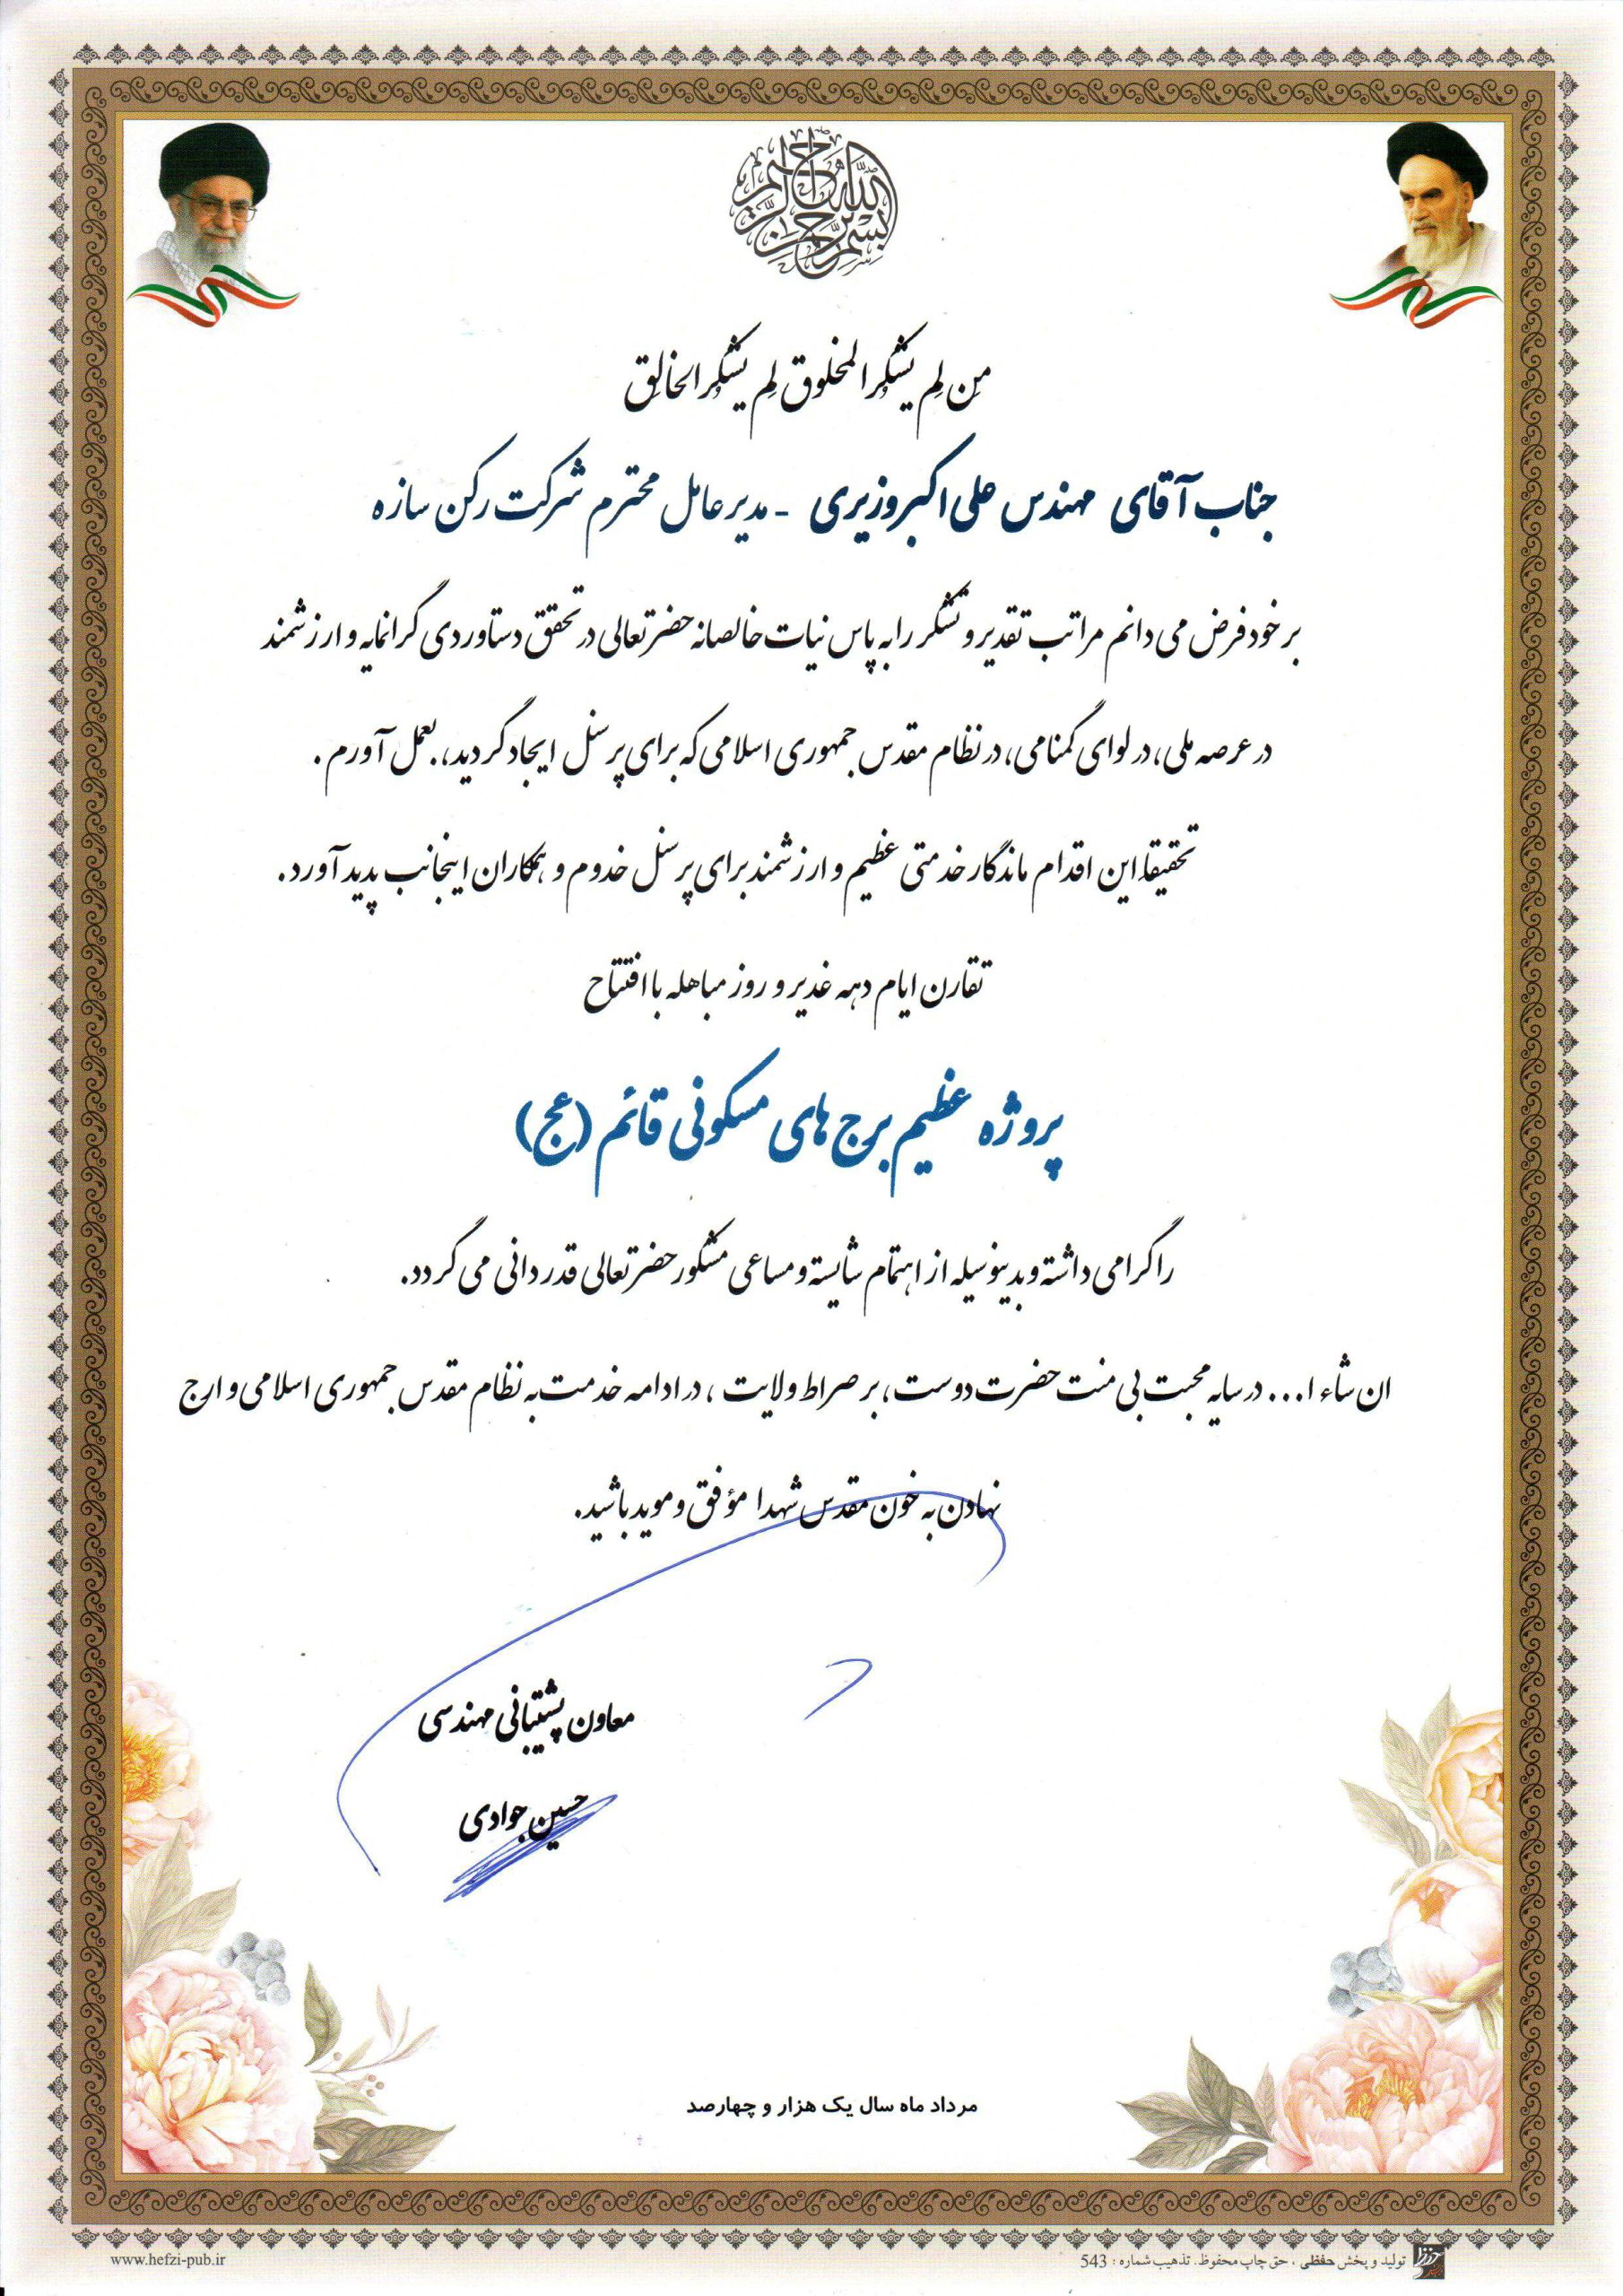 بسم الله الرحمن الرحیم
من لم یشکر المخلوق لم یشکر الخالق
جناب آقای مهندس علی اکبر وزیری - مدیر عامل محترم شرکت رکن سازه
بر خود فرض می دانم مراتب تقدیر و تشکر را به پاس نیات خالصانه حضرتعالی در تحقق دستاوردی گرانمایه و ارزشمند
در عرصه ملی، در لوای گمنامی، در نظام مقدس جمهوری اسلامی که برای پرسنل ایجاد گردید، بعمل آورم.
تحقیقا این اقدام ماندگار خدمتی عظیم و ارزشمند برای پرسنل خدوم و همکاران اینجانب پدید آورد.
تقارن ایام دهه غدیر و روز مباهله با افتتاح
پروژه عظیم برج های مسکونی قائم (عج)
را گرامی داشته و بدینوسیله از اهتمام شایسته و مساعی مشکور حضرتعالی قدردانی می گردد.
ان شاء ا... در سایه محبت بی منت حضرت دوست، بر صراط ولایت، در ادامه خدمت به نظام مقدس جمهوری اسلامی و ارج
نهادن به خون مقدس شهدا مؤفق و موید باشید.
معاون پشتیبانی مهندسی
حسین جوادی
مرداد ماه سال یک هزار و چهارصد
تولید و پخش حفظی، حق چاپ محفوظ. تذهیب شماره: 543
www.hefzi-pub.ir